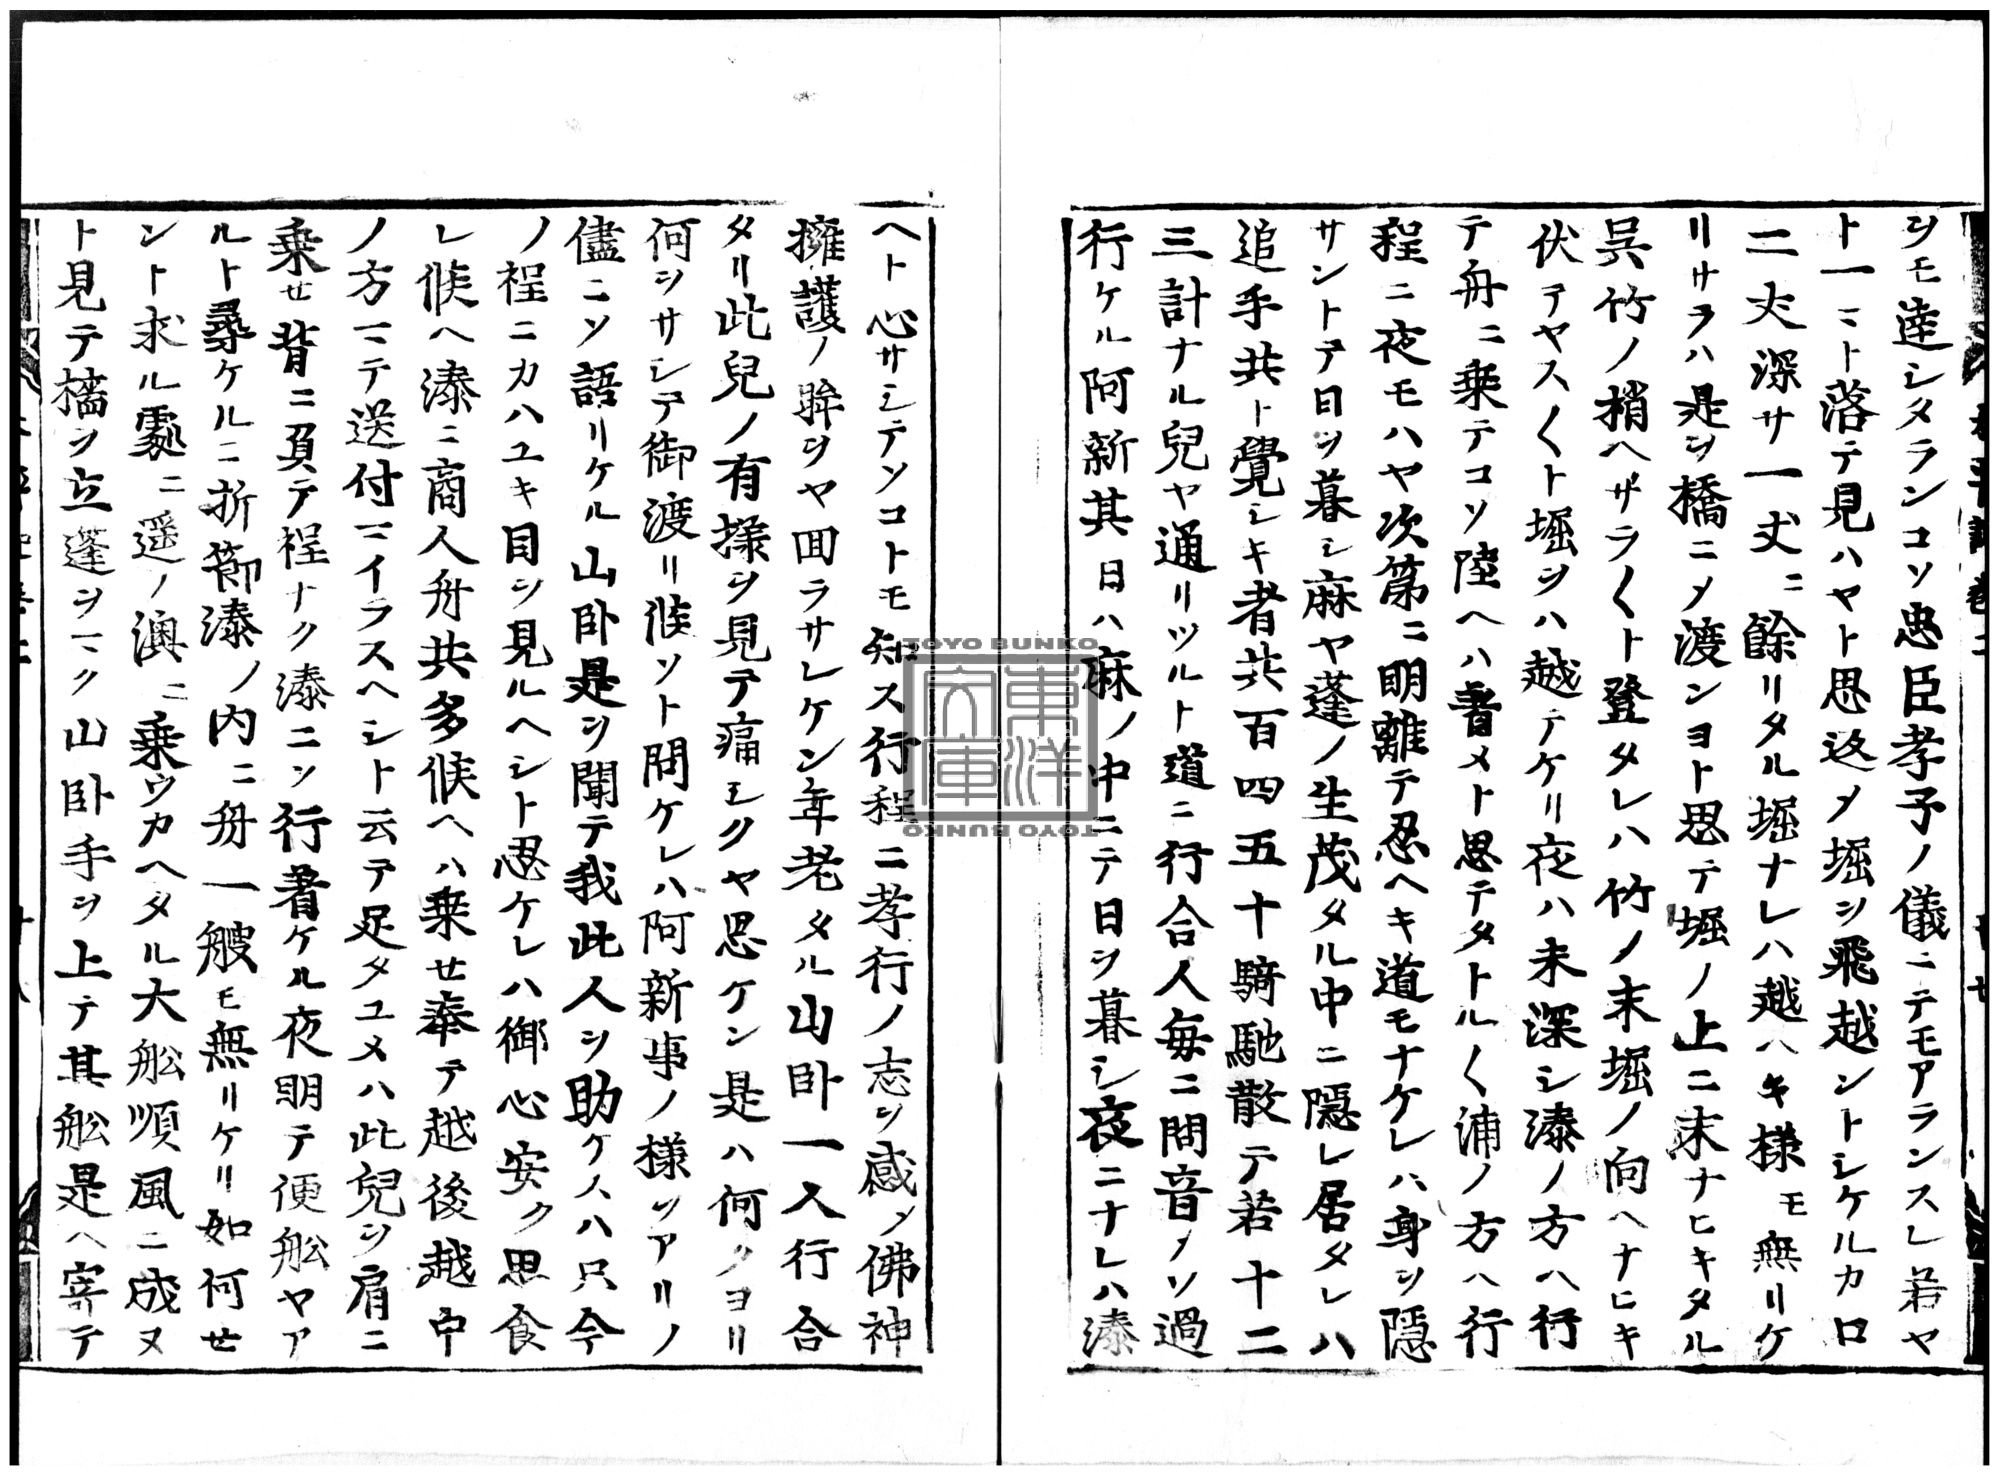 ヲモ達シタランコソ忠臣孝子ノ儀ニテモアランスレ若ヤ
ト一マト落テ見ハヤト思返メ堀ヲ飛越ントシケルカ口
二丈深サ一丈ニ餘リタル堀ナレハ越ヘキ様モ無リケ
リサラハ是ヲ橋ニメ渡ンヨト思テ堀ノ上ニ末ナヒキタル
呉竹ノ梢ヘザラ〱ト登タレハ竹ノ末堀ノ向ヘナヒキ
伏テヤス〱ト堀ヲハ越テケリ夜ハ未深シ湊ノ方ヘ行
テ舟ニ乗テコソ陸ヘハ着メト思テタトル〱浦ノ方ヘ行
程ニ夜モハヤ次第ニ明離テ忍ヘキ道モナケレハ身ヲ隠
サントテ日ヲ暮シ麻ヤ蓬ノ生茂タル中ニ隠レ居タレハ
追手共ト覺シキ者共百四五十騎馳散テ若十二
三計ナル兒ヤ通リツルト道ニ行合人毎ニ問音メソ過
行ケル阿新其日ハ麻ノ中ニテ日ヲ暮シ夜ニナレハ湊
ヘト心サシテソコトモ知ス行程ニ孝行ノ志ヲ感メ佛神
擁護ノ眸ヲヤ回ラサレケン年老タル山卧一人行合
タリ此兒ノ有様ヲ見テ痛シクヤ思ケン是ハ何クヨリ
何ヲサシテ御渡リ候ソト問ケレハ阿新事ノ様ヲアリノ
儘ニソ語リケル山卧是ヲ聞テ我此人ヲ助ケスハ只今
ノ程ニカハユキ目ヲ見ルヘシト思ケレハ御心安ク思食
レ候ヘ湊ニ商人舟共多候ヘハ乗せ奉テ越後越中
ノ方マテ送付マイラスヘシト云テ足タユメハ此兒ヲ肩ニ
乗せ背ニ負テ程ナク湊ニソ行着ケル夜明テ便舩ヤア
ルト尋ケルニ折節湊ノ内ニ舟一艘モ無リケリ如何せ
ント求ル處ニ遥ノ澳ニ乗ウカヘタル大舩順風ニ成ヌ
ト見テ檣ヲ立篷ヲマク山卧手ヲ上テ其舩是ヘ寄テ
TOYO BUNKO
東洋文庫
TOYO BUNKO